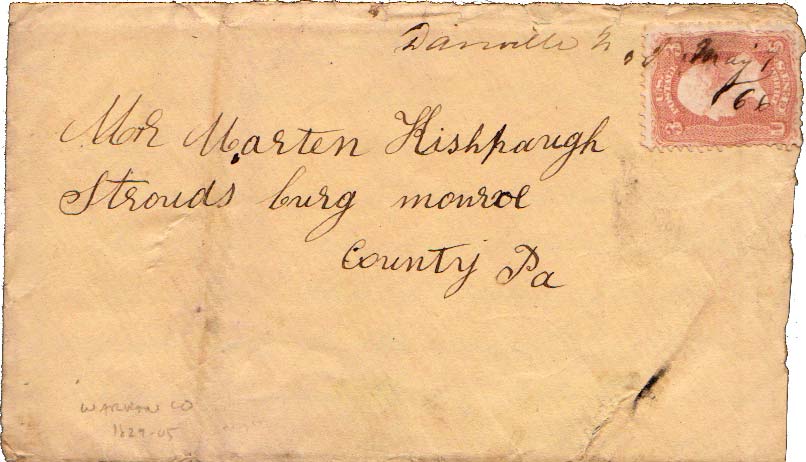 Danville N. J. May 1
68
Mr Marten Kishpaugh
Strouds burg monroe
County Pa
WARREN CO
1829-05